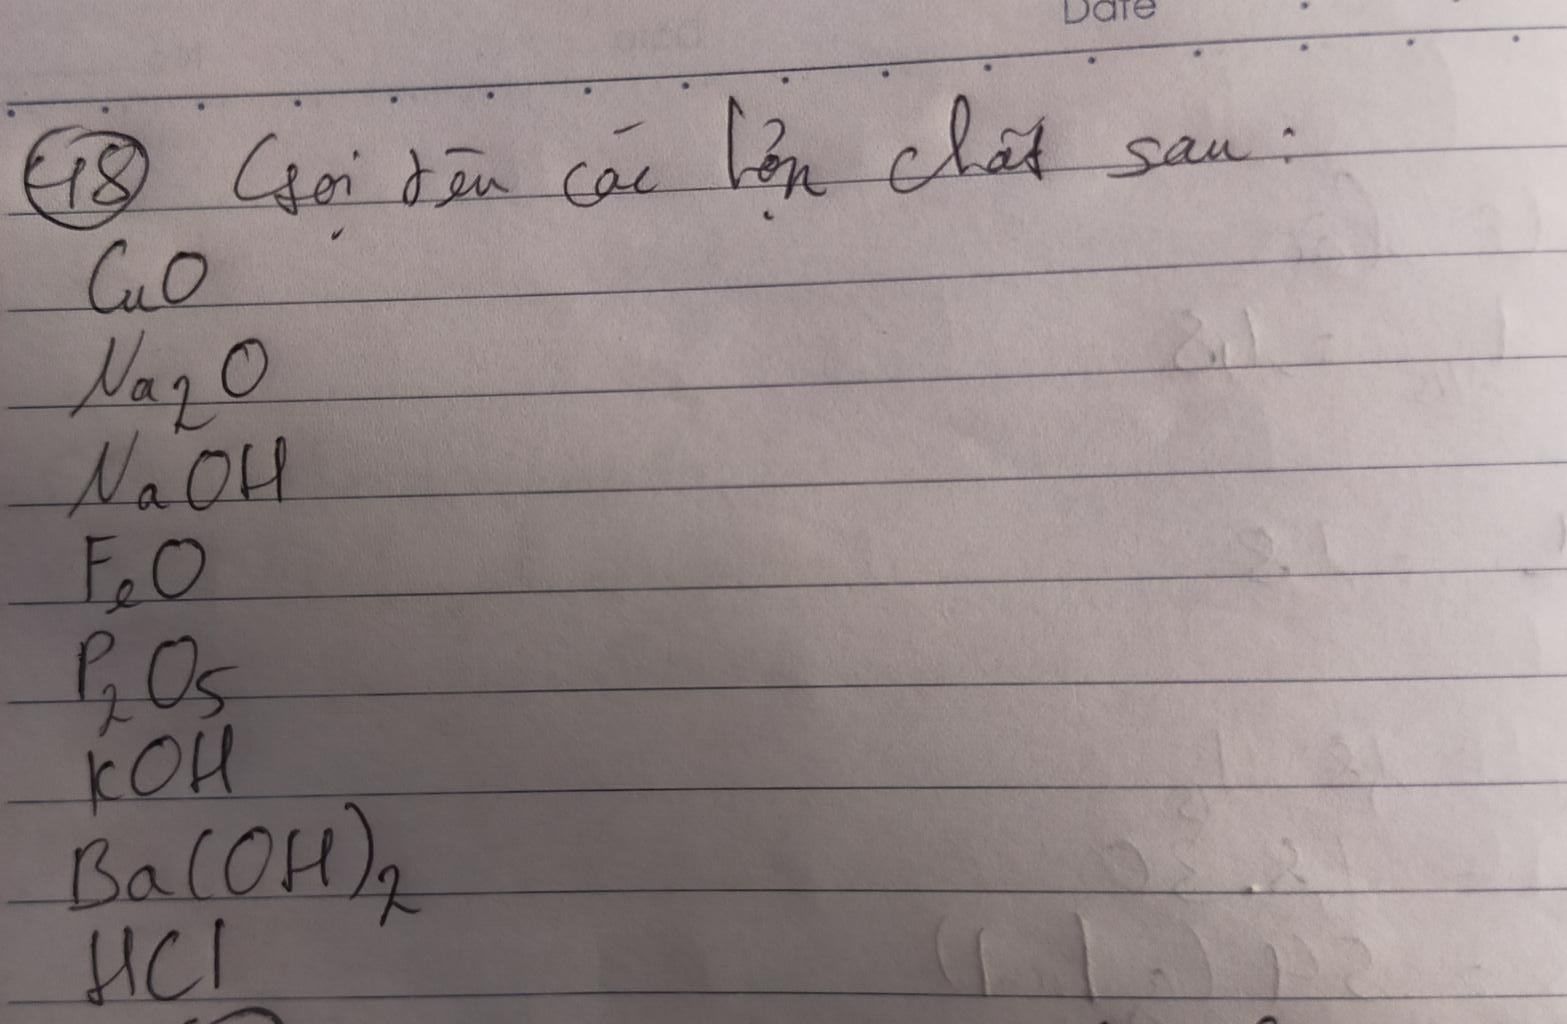 Date
48 Gọi tên các hợp chất sau:
CuO
Na2O
NaOH
FeO
P2O5
KOH
Ba(OH)2
HCl